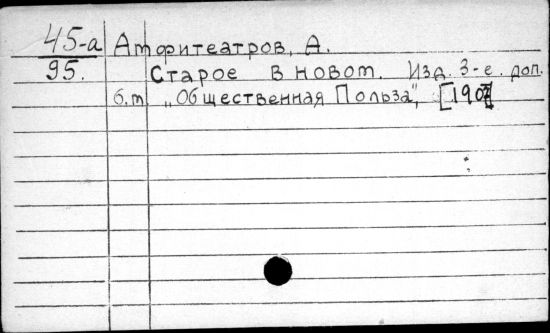 45-а Амфитеатров, А.
95. Старое в новом. Изд. 3-е. доп.
б.m „Общественная Польза", [1907]